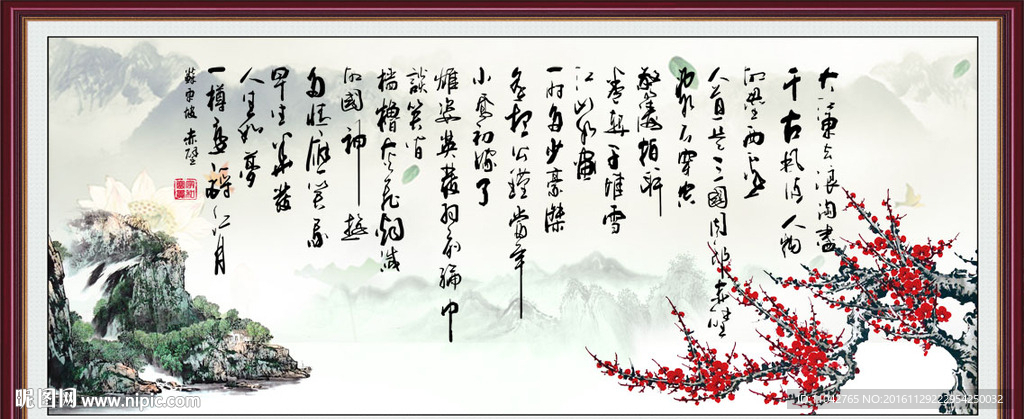 大江東去浪淘盡
千古風流人物
故壘西邊
人道是三國周郎赤壁
亂石穿空
驚濤拍岸
卷起千堆雪
江山如畫
一时多少豪傑
遙想公瑾當年
小喬初嫁了
雄姿英發羽扇綸巾
談笑間
檣櫓灰飛煙滅
故國神遊
多情應笑我
早生華髮
人生如夢
一樽還酹江月
蘇東坡 赤壁
昵图网 www.nipic.com
ID:11042765 NO:20161129222954250032